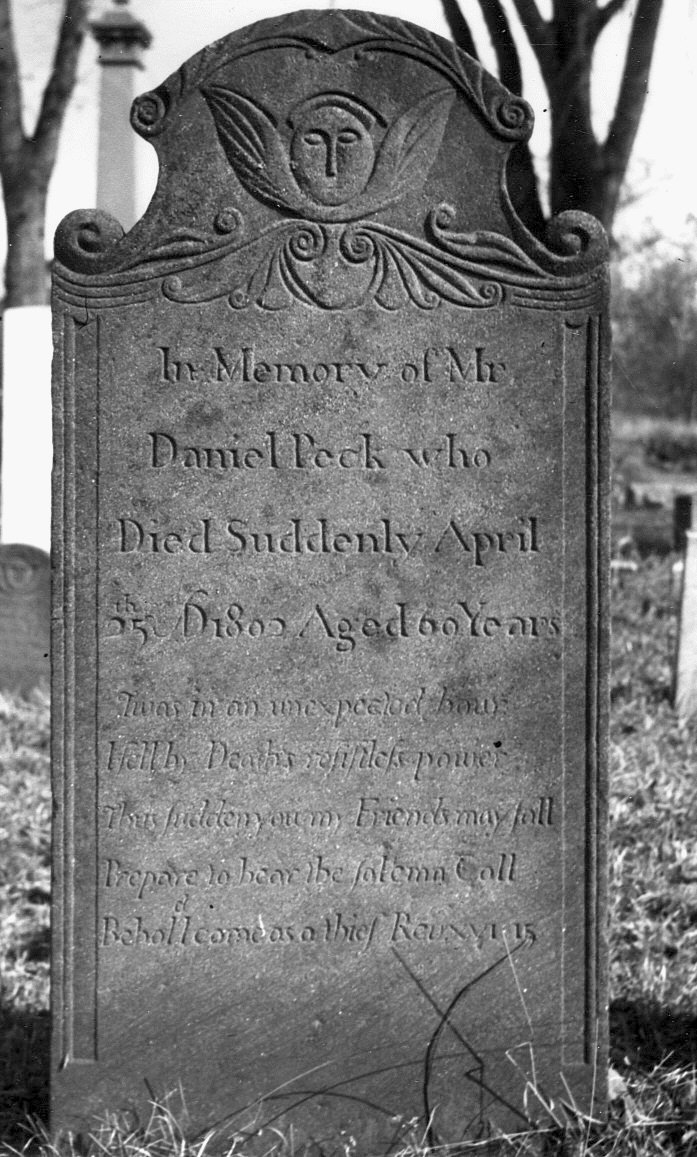 In Memory of Mr
Daniel Peck who
Died Suddenly April
25th AD 1802 Aged 60 Years
Twas in an unexpected hour
I fell by Death's resiſtleſs power
Thus ſudden you my Friends may fall
Prepare to hear the ſolemn Call
Behold I come as a thief Rev XVI 15